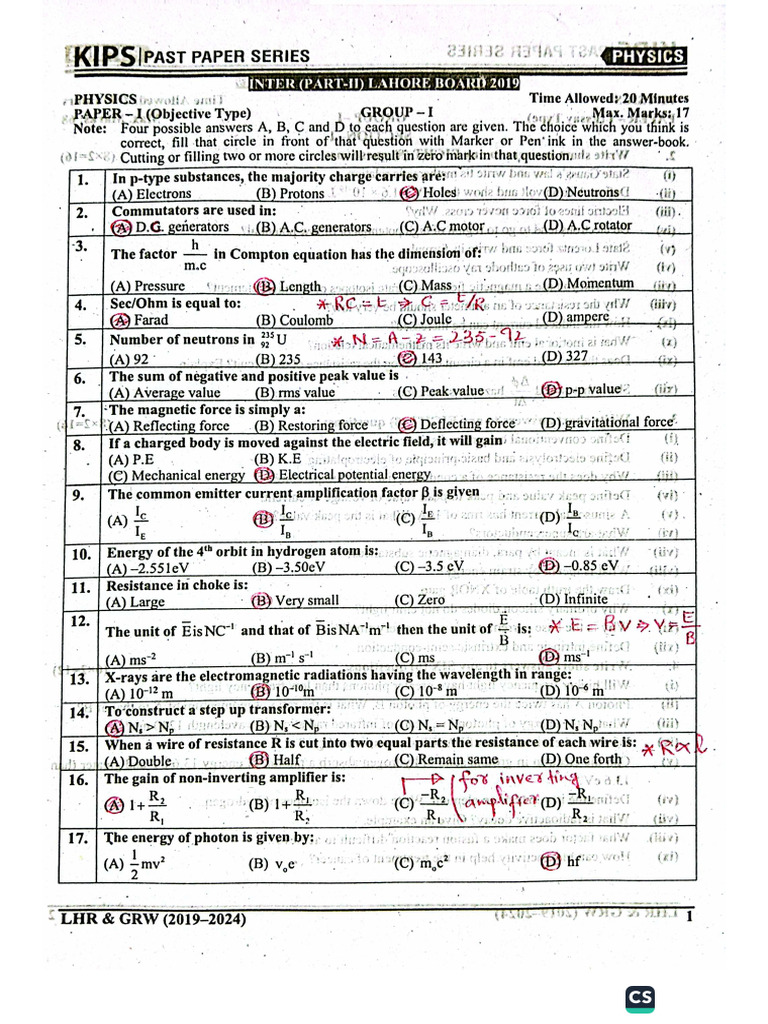 KIPS PAST PAPER SERIES PHYSICS
INTER (PART-II) LAHORE BOARD 2019
PHYSICS Time Allowed: 20 Minutes
PAPER – I (Objective Type) GROUP – I Max. Marks: 17
Note: Four possible answers A, B, C and D to each question are given. The choice which you think is
correct, fill that circle in front of that question with Marker or Pen ink in the answer-book.
Cutting or filling two or more circles will result in zero mark in that question.
1. In p-type substances, the majority charge carries are:
(A) Electrons (B) Protons (C) Holes (D) Neutrons
2. Commutators are used in:
(A) D.C. generators (B) A.C. generators (C) A.C motor (D) A.C rotator
3. The factor h/m.c in Compton equation has the dimension of:
(A) Pressure (B) Length (C) Mass (D) Momentum
4. Sec/Ohm is equal to: * RC = t ⇒ C = t/R
(A) Farad (B) Coulomb (C) Joule (D) ampere
5. Number of neutrons in ²³⁵₉₂U * N = A - Z = 235 - 92
(A) 92 (B) 235 (C) 143 (D) 327
6. The sum of negative and positive peak value is
(A) Average value (B) rms value (C) Peak value (D) p-p value
7. The magnetic force is simply a:
(A) Reflecting force (B) Restoring force (C) Deflecting force (D) gravitational force
8. If a charged body is moved against the electric field, it will gain
(A) P.E (B) K.E
(C) Mechanical energy (D) Electrical potential energy
9. The common emitter current amplification factor β is given
(A) I_C/I_E (B) I_C/I_B (C) I_E/I_B (D) I_B/I_C
10. Energy of the 4th orbit in hydrogen atom is:
(A) –2.551eV (B) –3.50eV (C) –3.5 eV (D) –0.85 eV
11. Resistance in choke is:
(A) Large (B) Very small (C) Zero (D) Infinite
12. The unit of E̅ is NC⁻¹ and that of B̅ is NA⁻¹m⁻¹ then the unit of E̅/B̅ is: * E = BV ⇒ V = E/B
(A) ms⁻² (B) m⁻¹ s⁻¹ (C) ms (D) ms⁻¹
13. X-rays are the electromagnetic radiations having the wavelength in range:
(A) 10⁻¹² m (B) 10⁻¹⁰m (C) 10⁻⁸ m (D) 10⁻⁶ m
14. To construct a step up transformer:
(A) Ns > Np (B) Ns < Np (C) Ns = Np (D) Ns Np
15. When a wire of resistance R is cut into two equal parts the resistance of each wire is: * R∝l
(A) Double (B) Half (C) Remain same (D) One forth
16. The gain of non-inverting amplifier is: for inverting
amplifier
(A) 1+R₂/R₁ (B) 1+R₁/R₂ (C) –R₂/R₁ (D) –R₁/R₂
17. The energy of photon is given by:
(A) 1/2 mv² (B) v₀e (C) m₀c² (D) hf
LHR & GRW (2019–2024) 1
CS